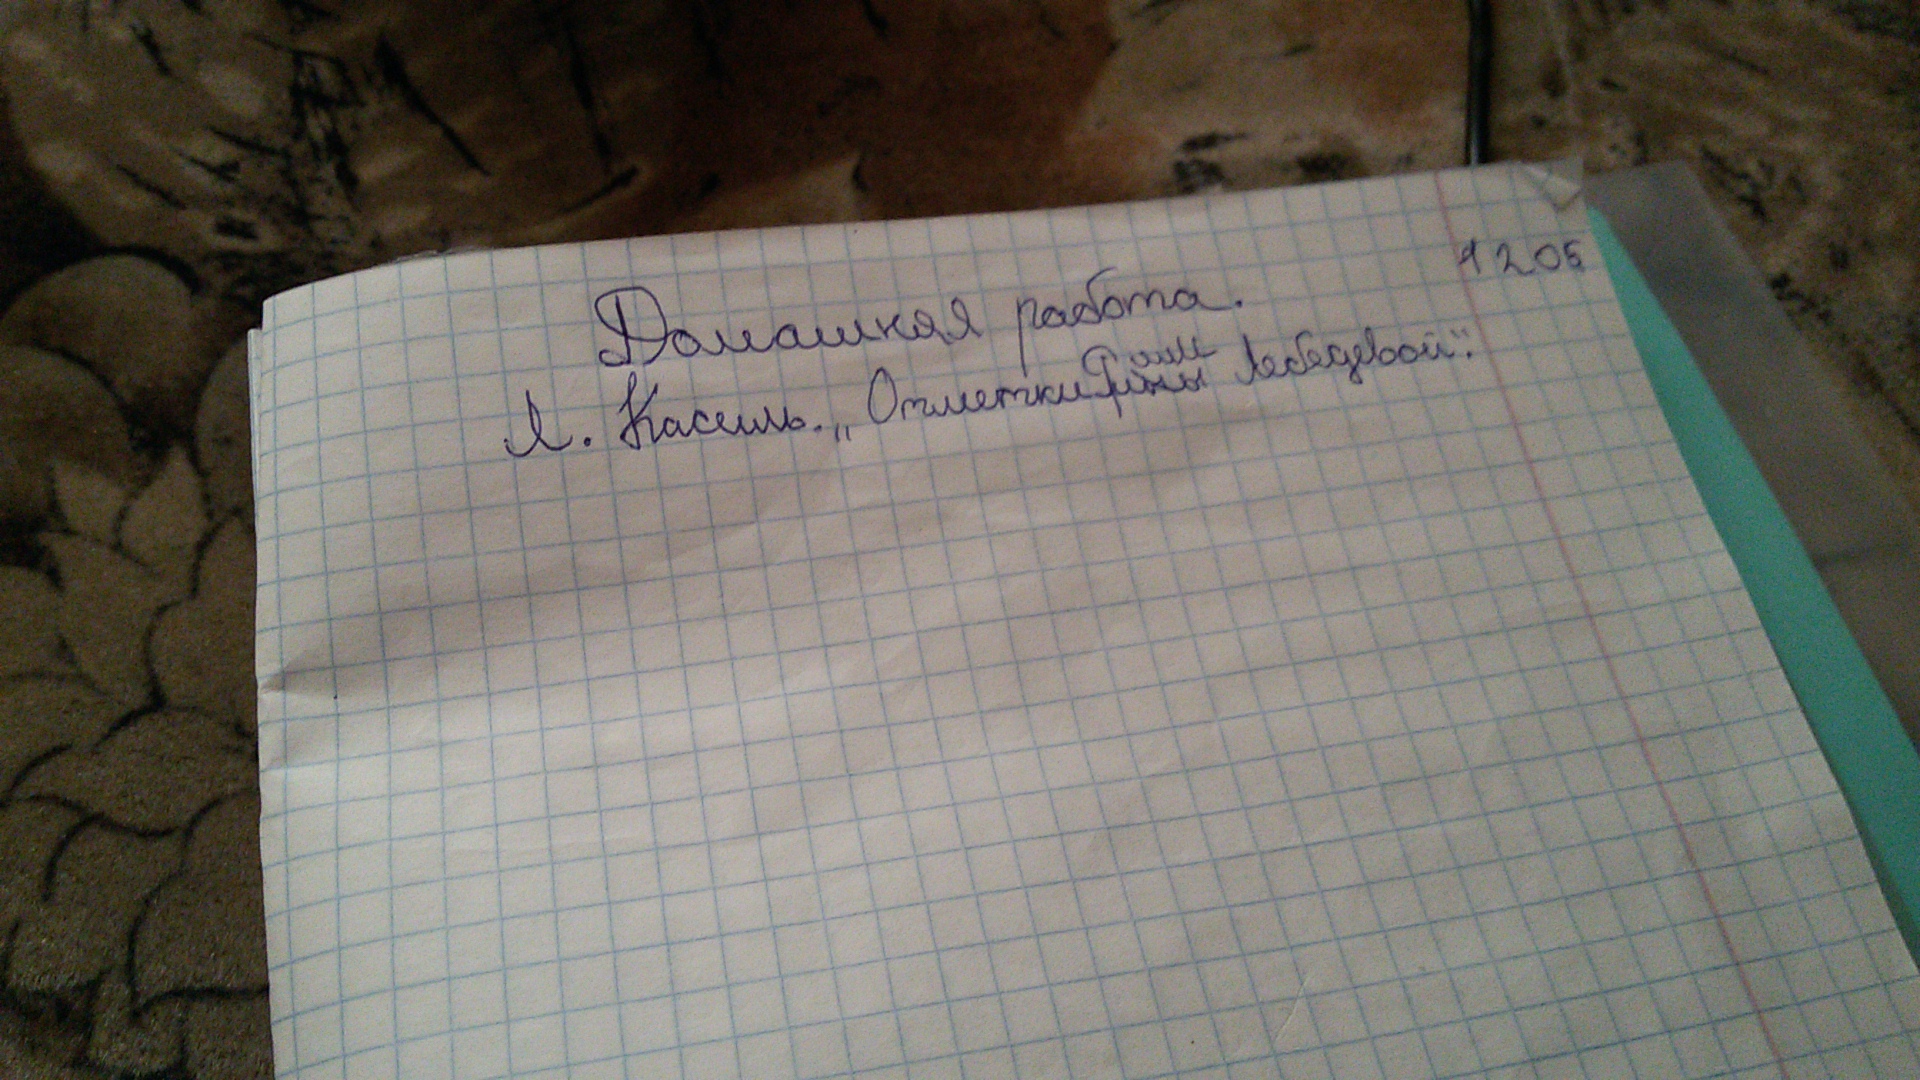 12 05
Домашняя работа.
Л. Кассиль. „Отметки Риммы Лебедевой".